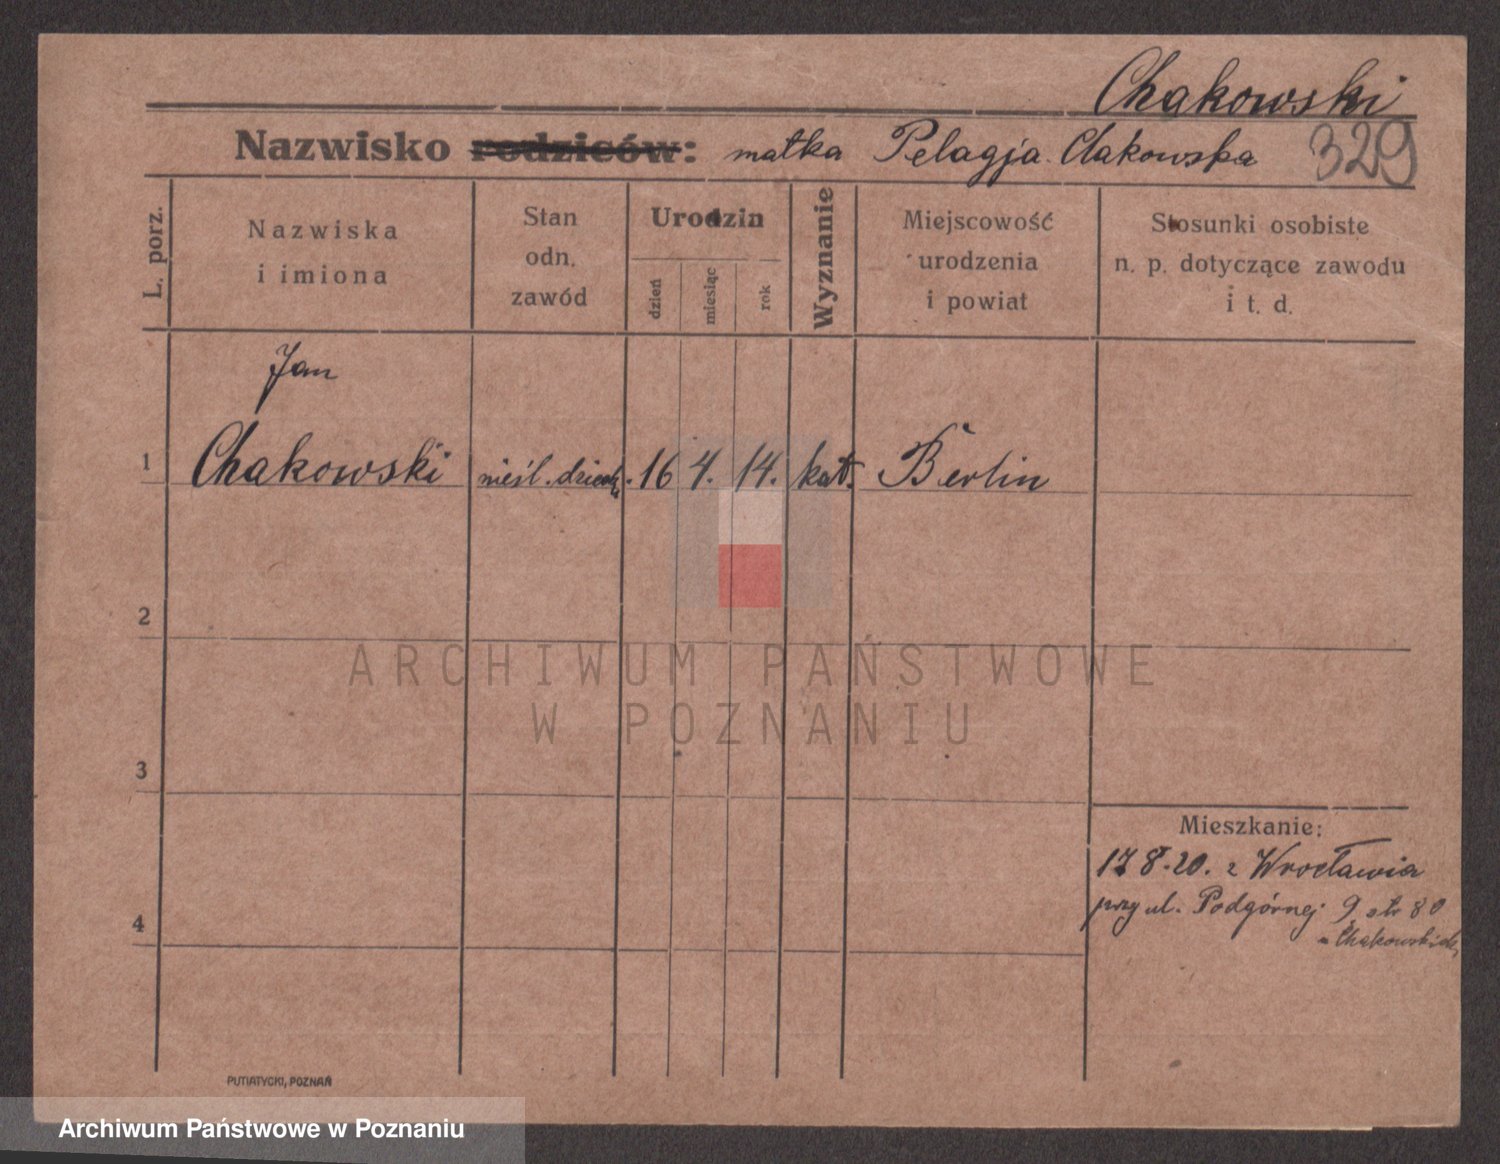 Chąkowski
Nazwisko rodziców: matka Pelagja Chąkowska
329
L. porz.
Nazwiska
i imiona
Stan
odn.
zawód
Urodzin
dzień
miesiąc
rok
Wyznanie
Miejscowość
urodzenia
i powiat
Stosunki osobiste
n. p. dotyczące zawodu
i t. d.
Jan
1 Chakowski nieśl. dziecko 16 4. 14. kat. Berlin
2
ARCHIWUM PAŃSTWOWE
W POZNANIU
3
Mieszkanie:
17 8.20. z Wrocławia
przy ul. Podgórnej 9 str 80
Chąkowskich
4
PUTIATYCKI, POZNAŃ
Archiwum Państwowe w Poznaniu